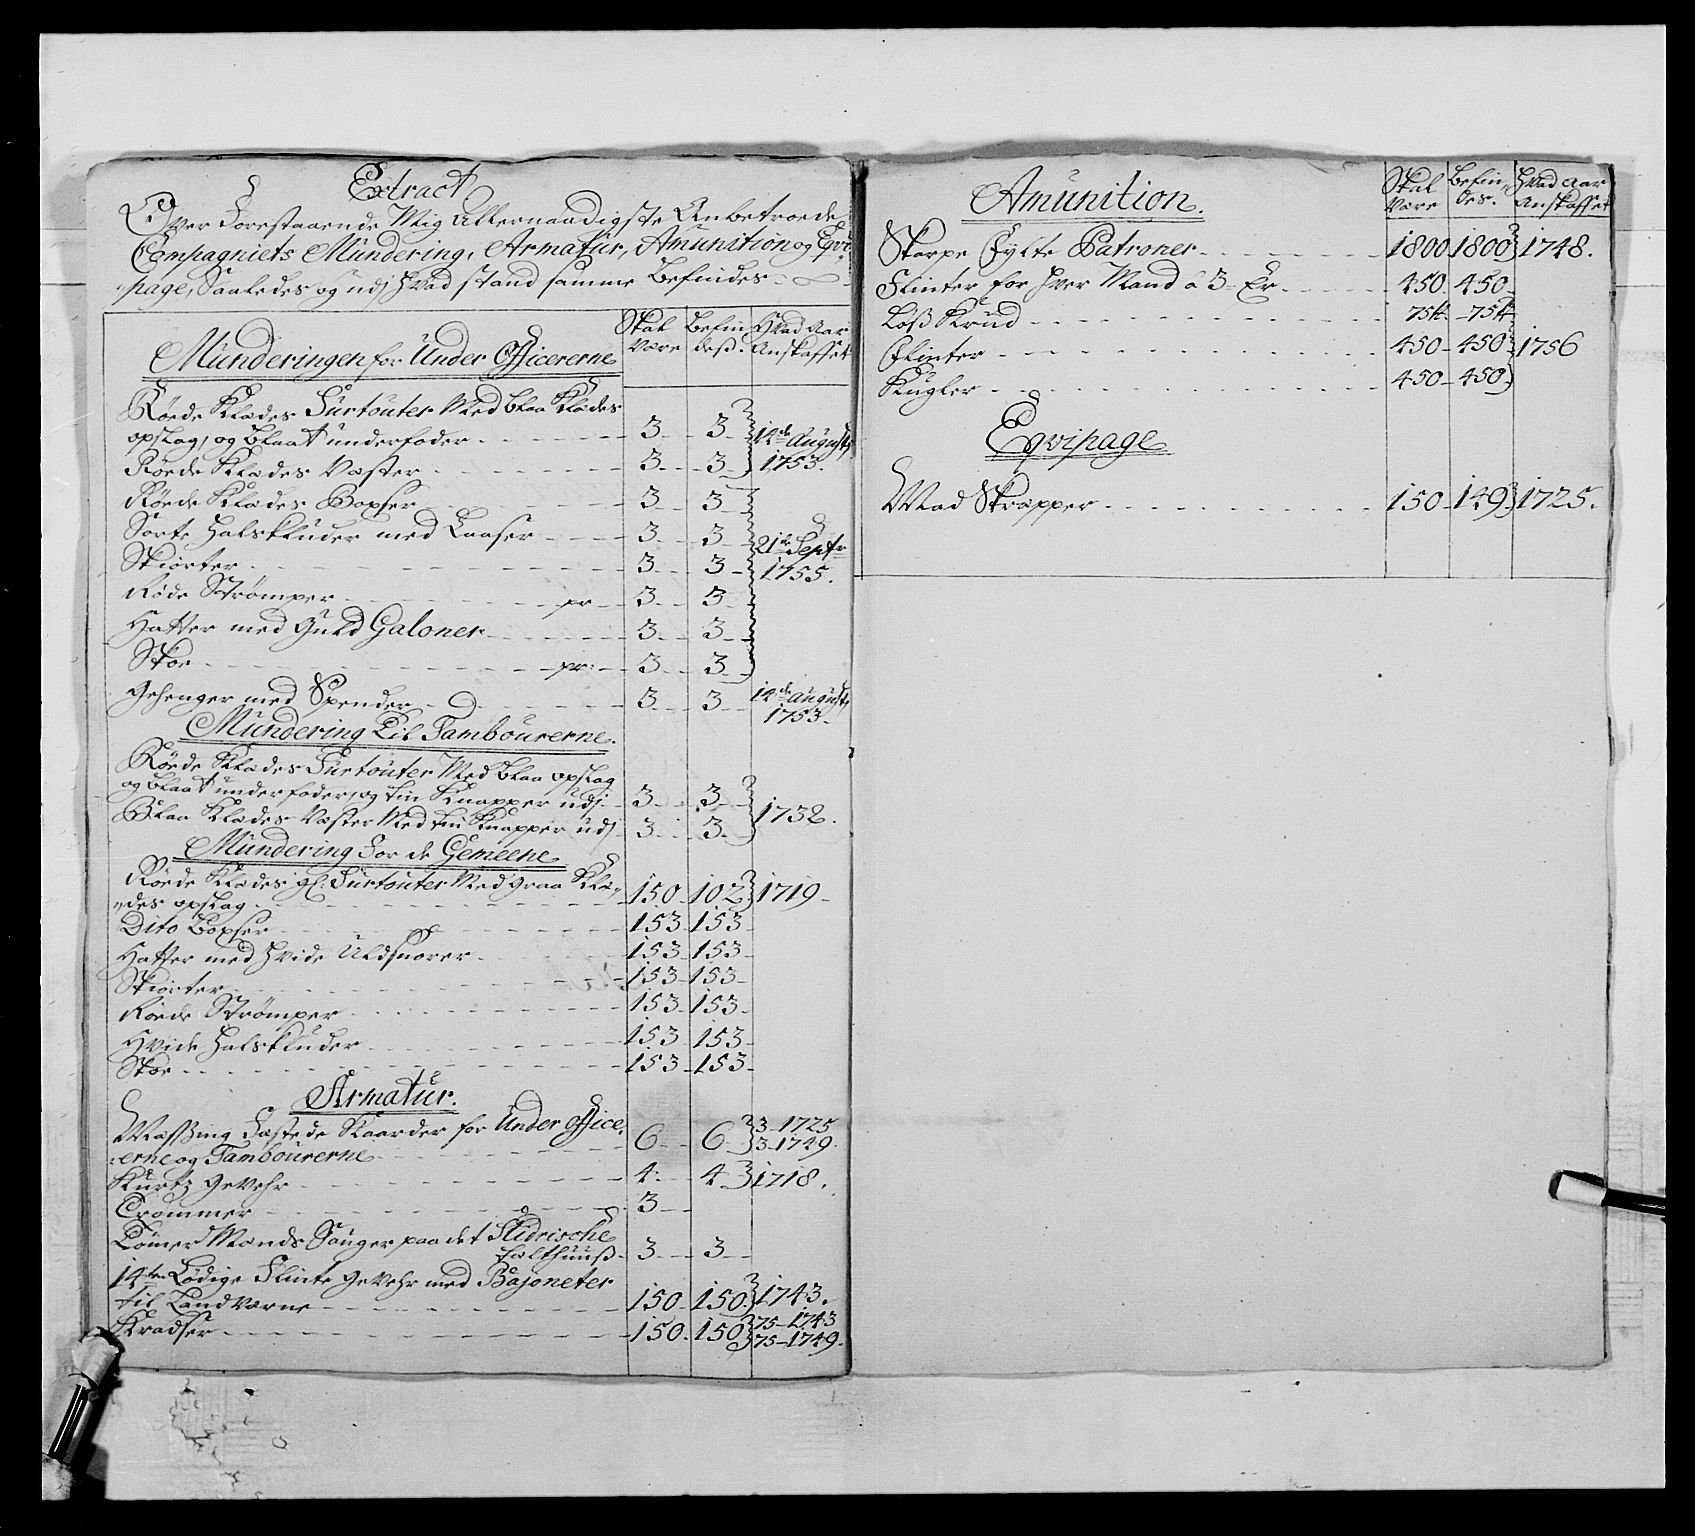 Extract
Over Forestaaende Mig Allernaadigste Anbetroede
Compagniets Mundering, Armatur, Amunition og Eqvi-
page, Saaledes og udj hvad stand samme befindes
Skal være
Befindess
Hvad Aar Anskaffet
Munderingen for Under Officererne
Røede Klædes Surtouter Med blaa Klædes
opslag, og blaat underfoder 3 3 14de Augusti
Røede Klædes Væster 3 3 1753.
Røede Klædes Boxser 3 3
Sorte Halskluder med Laaser 3 3 21de Septr
Skiorter 3 3 1755.
Røde Strømper pr 3 3
Hatter med Guld Galoner 3 3
Skoe pr: 3 3
Gehenger med Spender 3 3 14de Augusti 1753
Mundering Til Tambourerne.
Røede Klædes Surtouter Med blaa opslag
og blaat underfoder, og tin Knapper udj 3 3
Blaa Klædes Væster Med tin Knapper udj 3 3 1732.
Mundering For de Gemeene
Røede Klædes gl: Surtouter Med graa Klæ-
des opslag 150 102 1719
Dito Boxser 153 153
Hatter med hvide Uldsnorer 153 153
Skiorter 153 153
Røede Strømper 153 153
Hvide Halskluder 153 153
Skoe 153 153
Armatur.
Messing Fæstede Kaarder for Under Office-
rerne og Tambourerne 6 6 3-1725 3-1749.
Kurtz Gevehr 4 4 1718.
Trommer 3
Tømer Mænds Sauger paa det Slidrische
Fælthuuss 3 3
14ten Lødige Flinte Gevehr med Bajoneter
til Landværne 150 150 1743.
Kradser 150. 150 75-1743 75-1749.
Amunition.
Skal være
Befindes.
Hvad Aar Anskaffet
Skarpe Fylte Patroner 1800 1800 1748.
Flinter for hver Mand a 3 Er 450 450
Løss Krud 75 lb 75 lb
Flinter 450 450 1756
Kugler 450 450
Eqvipage
Mad Skrapper 150 149 1725.